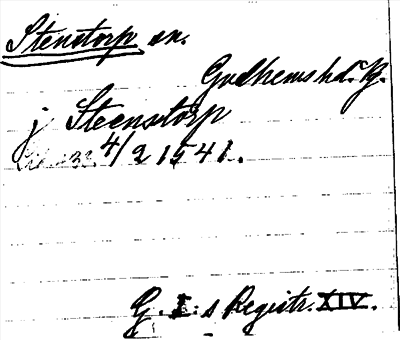 Stenstorp sn.
Gudhems hd. Vg.
j Steenstorp
4/2 1541.
G. I:s Registr. XIV.